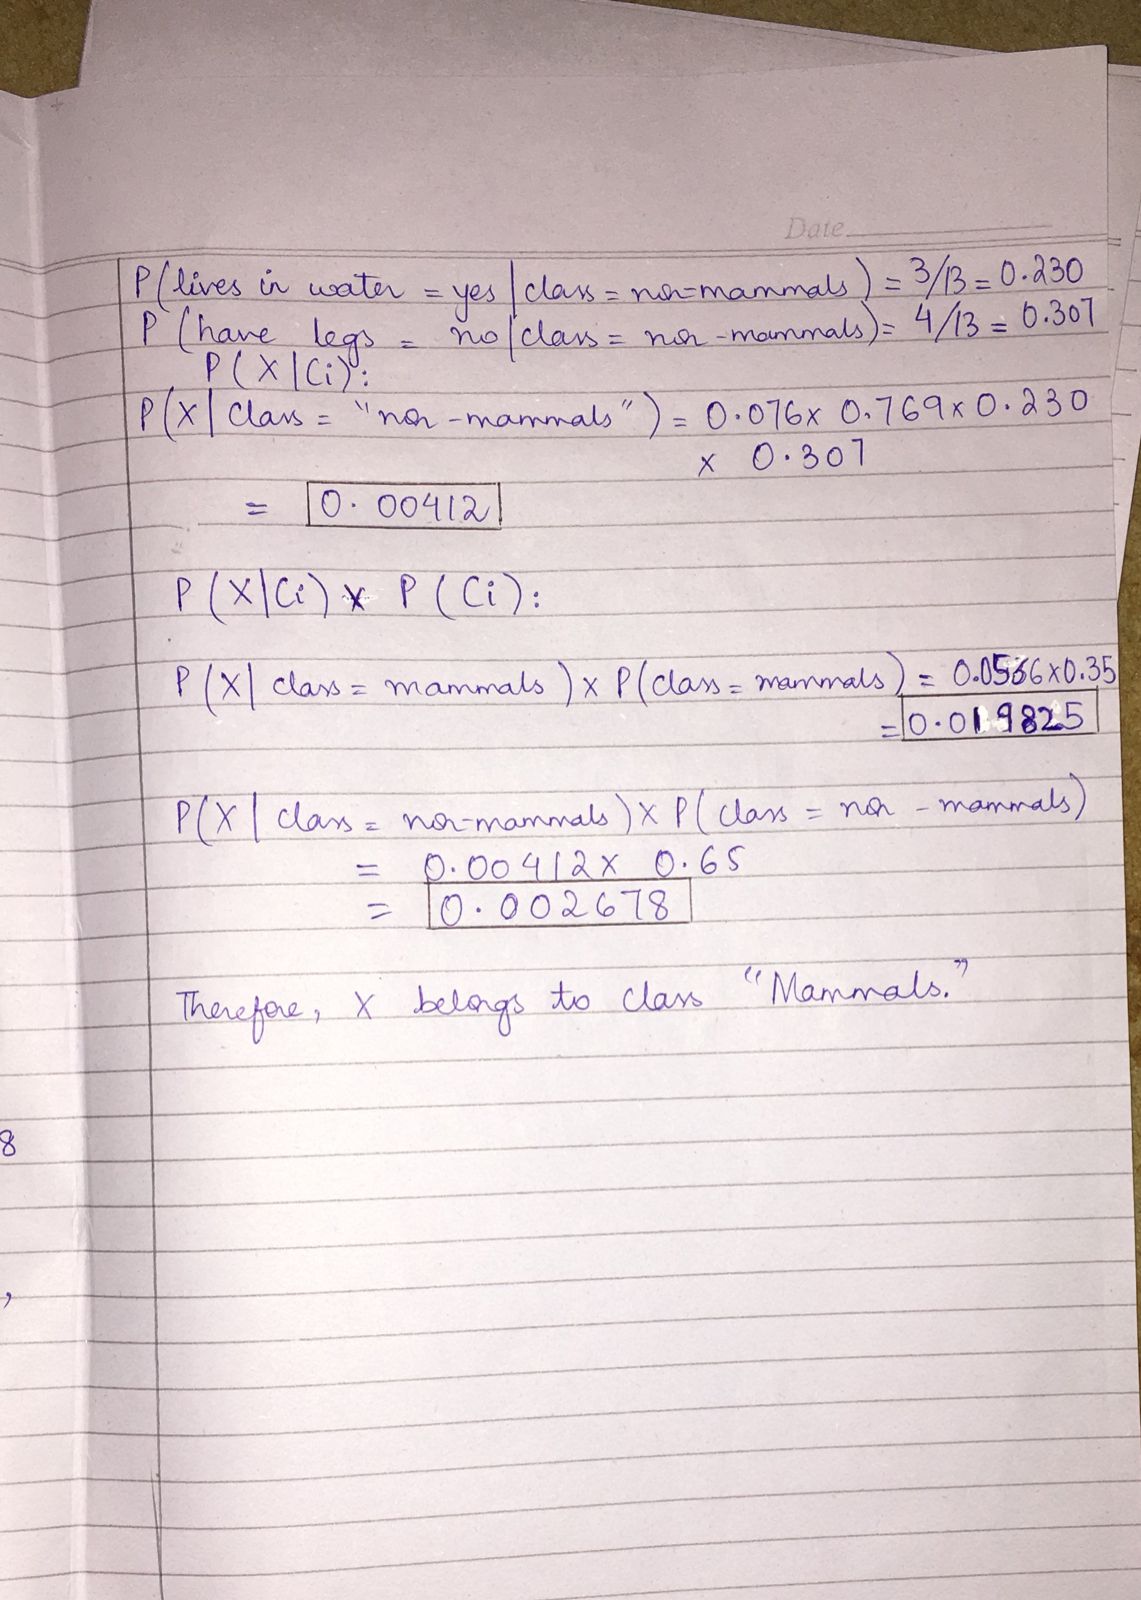 Date
P(lives in water = yes | class = non-mammals) = 3/13 = 0.230
P (have legs = no | class = non-mammals) = 4/13 = 0.307
P(X|Ci):
P(X| class = "non-mammals") = 0.076 x 0.769 x 0.230
x 0.307
= 0.00412
P(X|Ci) x P(Ci):
P(X| class = mammals) x P(class = mammals) = 0.0566 x 0.35
= 0.019825
P(X| class = non-mammals) x P(class = non-mammals)
= 0.00412 x 0.65
= 0.002678
Therefore, X belongs to class "Mammals."
8
,